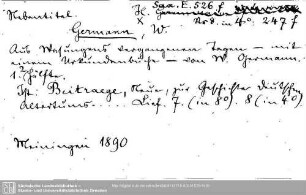 Nebentitel
Sax. E. 526 f
in 4o. 247 f
Germann, W.
Aus Wasungens vergangenen Tagen – mit
einem Urkundenbuche – von W. Germann.
1. Hälfte.
Ist: Beitraege, Neue, zur Geschichte deutschen
Altertums.... Lief. 7. (in 8o). 8 (in 4o).
Meiningen 1890
Sächsische Landesbibliothek -
Staats- und Universitätsbibliothek Dresden